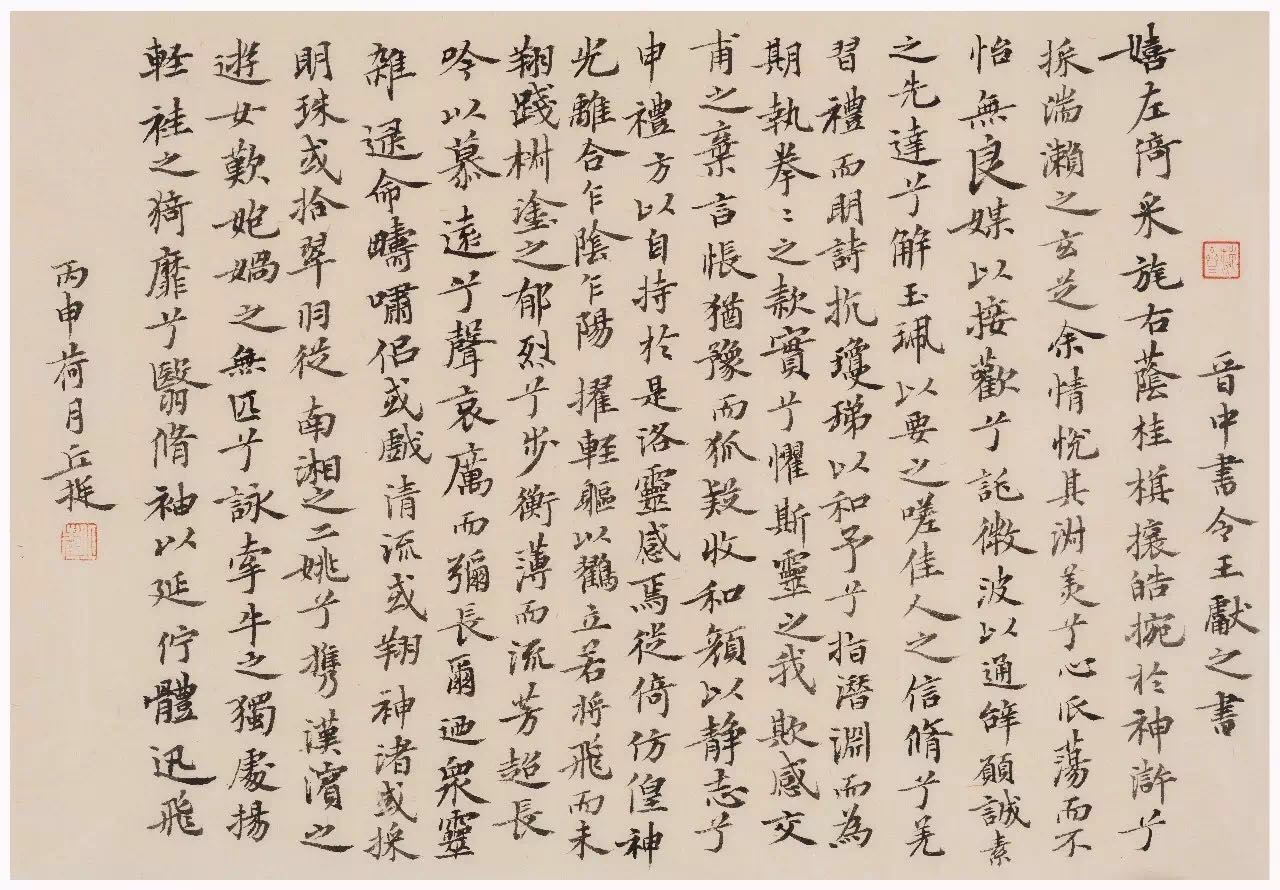 晉中書令王獻之書
嬉左倚采旄右蔭桂棋攘皓捥於神滸兮
採湍瀨之玄芝余情悅其淑美兮心振蕩而不
怡無良媒以接歡兮託微波以通辝願誠素
之先達兮解玉珮以要之嗟佳人之信脩兮羌
習禮而明詩抗瓊珶以和予兮指潛淵而為
期執拳〻之款實兮懼斯靈之我欺感交
甫之棄言悵猶豫而狐疑收和顏以靜志兮
申禮方以自持於是洛靈感焉從倚仿偟神
光離合乍陰乍陽擢輕軀以鶴立若將飛而未
翔踐椒塗之郁烈兮步衡薄而流芳超長
吟以慕遠兮聲哀厲而彌長爾迺眾靈
雜遝命疇嘯侶或戲清流或翔神渚或採
明珠或拾翠羽從南湘之二姚兮攜漢濱之
遊女歎匏媧之無匹兮詠牽牛之獨處揚
軽袿之猗靡兮翳脩袖以延佇體迅飛
丙申荷月丘挻